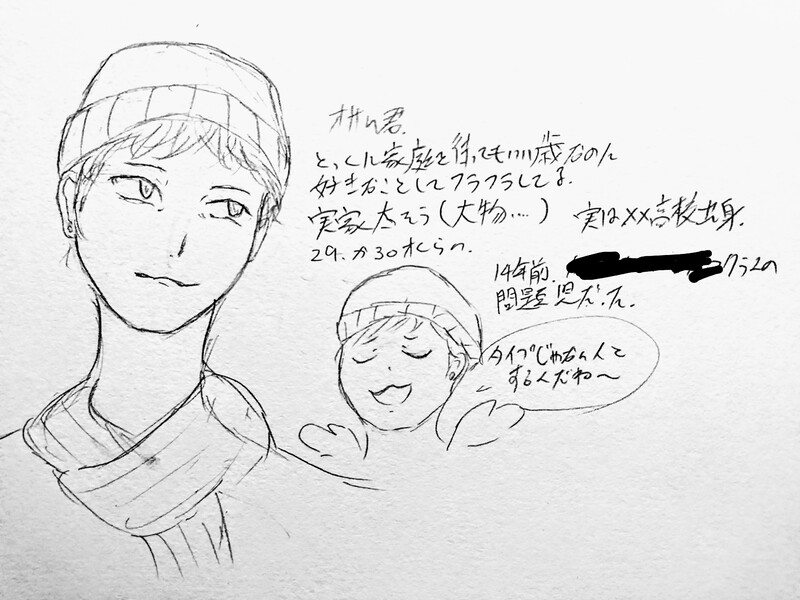 オサム君.
とっくに家庭を持ってもいい歳なのに
好きなことしてフラフラしてる.
実家太そう(大物....)
実は××高校出身.
29.か30才くらい.
14年前.
クラスの
問題児だった.
タイプじゃない人と
するんだね〜